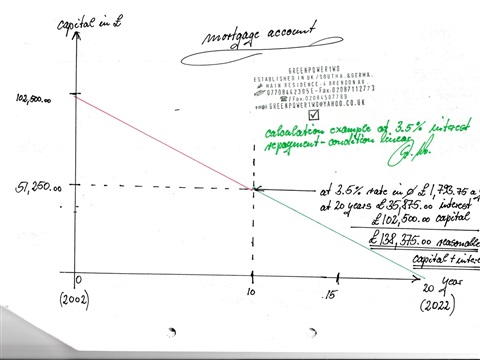 capital in £
mortgage account
GREENPOWER1WD
ESTABLISHED IN UK/SOUTH A.&GERMA.
MAIN RESIDENCE
E-Fax.02087112773
/Fax.02084507789
@GREENPOWER1WD@YAHOO.CO.UK
calculation example at 3.5% interest
repayment-condition linear
102,500.00
51,250.00
at 3.5% rate in Ø £1,793.75 a
at 20 years £35,875.00 interest
£102,500.00 capital
£138,375.00 reasonable
capital + inter
0
10
.15
20 year
(2002)
(2022)